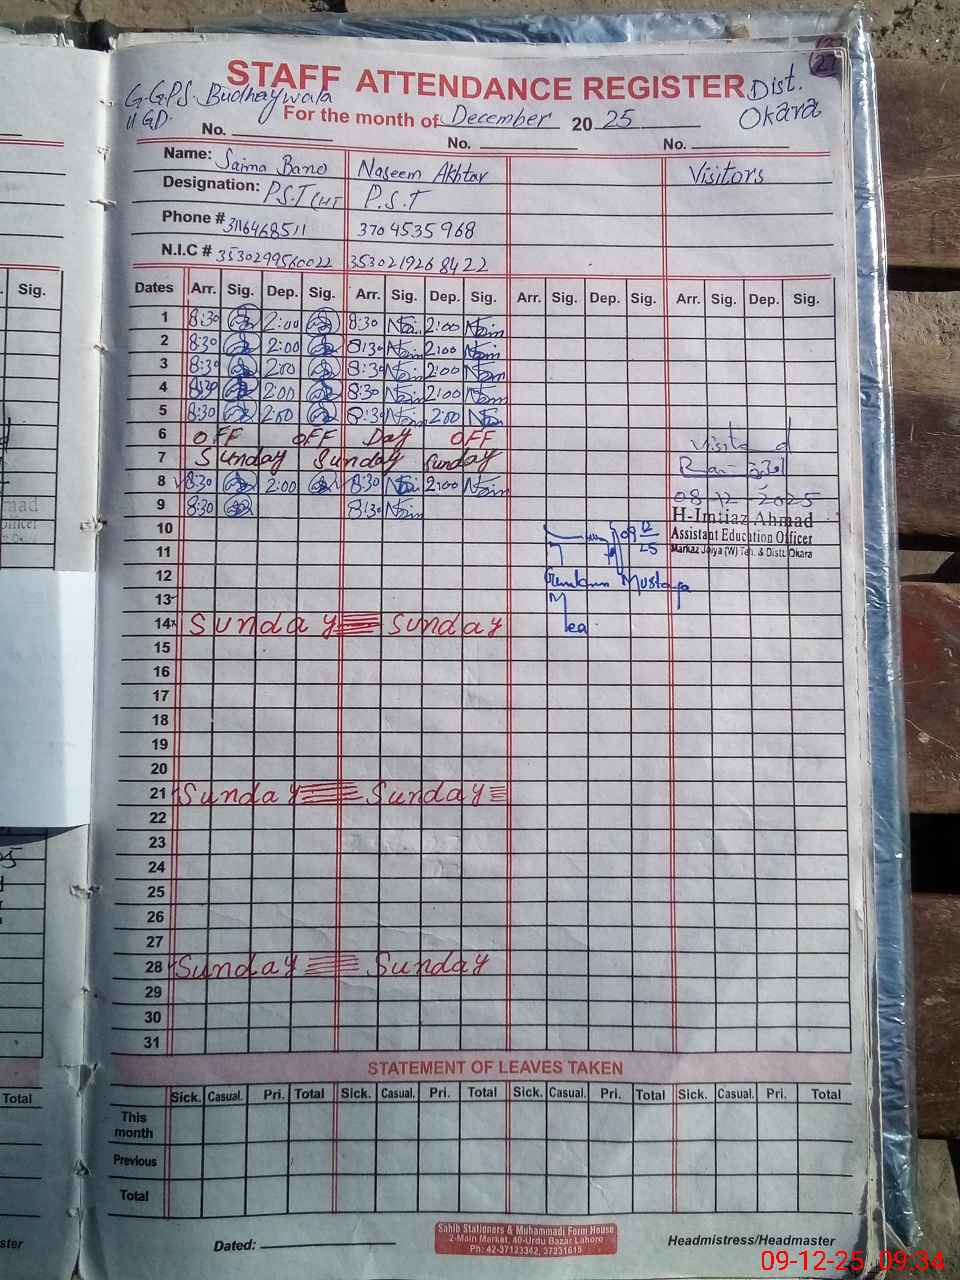 27
STAFF ATTENDANCE REGISTER
G.G.P.S. Budhaywala
Dist.
Okara
For the month of December 20 25
No. No. No.
Name: Saima Bano Naseem Akhtar Visitors
Designation: P.S.T (HT P.S.T
Phone # 3116468511 3704535968
N.I.C # 3530299560022 3530219268422
Sig. Dates Arr. Sig. Dep. Sig. Arr. Sig. Dep. Sig. Arr. Sig. Dep. Sig. Arr. Sig. Dep. Sig.
1 8:30 2:00 8:30 2:00
2 8:30 2:00 8:30 2:00
3 8:30 2:00 8:30 2:00
4 8:30 2:00 8:30 2:00
5 8:30 2:00 8:30 2:00
6 OFF OFF Day OFF
7 Sunday Sunday Sunday
8 8:30 2:00 8:30 2:00
9 8:30 8:30
Visited
08-12-2025
H-Imtiaz Ahmad
Assistant Education Officer
Markaz Joiya (W) Teh. & Distt. Okara
10
09 12
25
11
12 Mustafa
13
Mea
14 Sunday Sunday
15
16
17
18
19
20
21 Sunday Sunday
22
23
24
25
26
27
28 Sunday Sunday
29
30
31
STATEMENT OF LEAVES TAKEN
Total Sick. Casual. Pri. Total Sick. Casual. Pri. Total Sick. Casual. Pri. Total Sick. Casual. Pri. Total
This
month
Previous
Total
Dated:
Sahib Stationers & Muhammadi Form House
2-Main Market, 40-Urdu Bazar Lahore
Ph: 42-37123342, 37231615
Headmistress/Headmaster
09-12-25 09:34